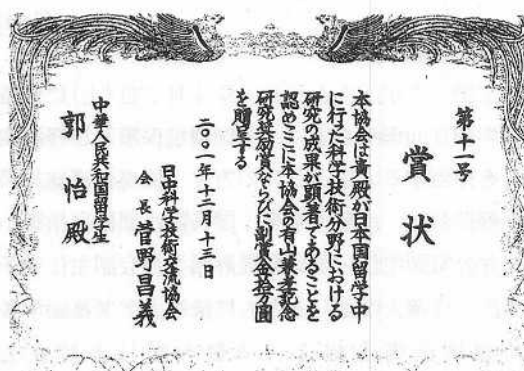 第十一号
賞状
本協会は貴殿が日本国留学中
に行った科学技術分野における
研究の成果が顕著であることを
認めここに本協会の有山兼孝記念
研究奨励賞ならびに副賞金拾万圓
を贈呈する
二〇〇一年十二月十三日
日中科学技術交流協会
会長 菅野昌義
中華人民共和国留学生
郭怡殿